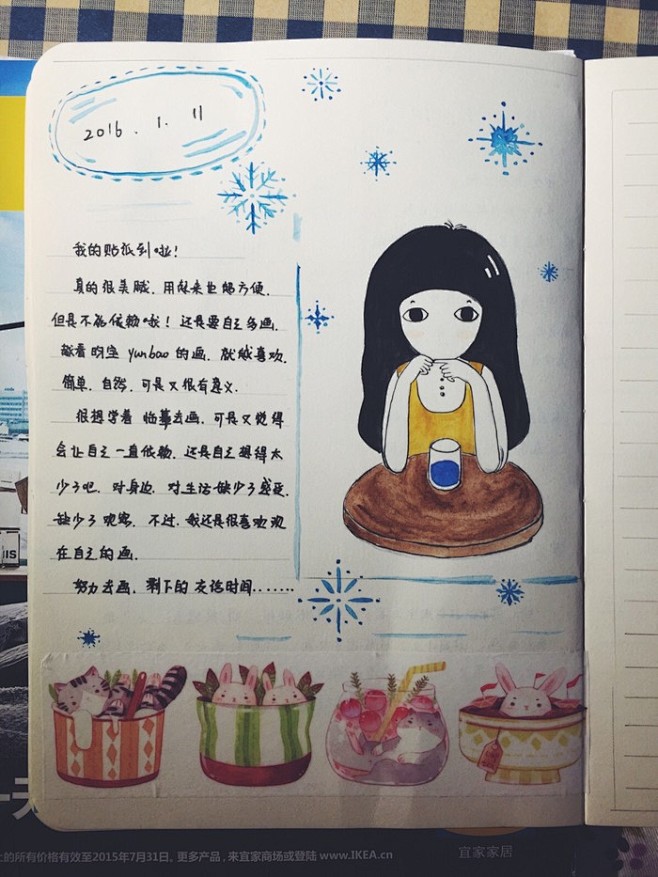 2016.1.11
我的贴纸到啦！
真的很美腻、用起来也够方便、
但是不能依赖哦！还是要自己多画、
越看明宝 yunbao 的画、就越喜欢、
简单、自然、可是又很有意义、
很想学着临摹去画、可是又觉得
会让自己一直依赖、还是自己想得太
少了吧、对身边、对生活缺少了感受、
缺少了观察、不过、我还是很喜欢现
在自己的画、
努力去画、剩下的交给时间......
IIS
一天
上的所有价格有效至2015年7月31日。更多产品，来宜家商场或登陆 www.IKEA.cn
宜家家居